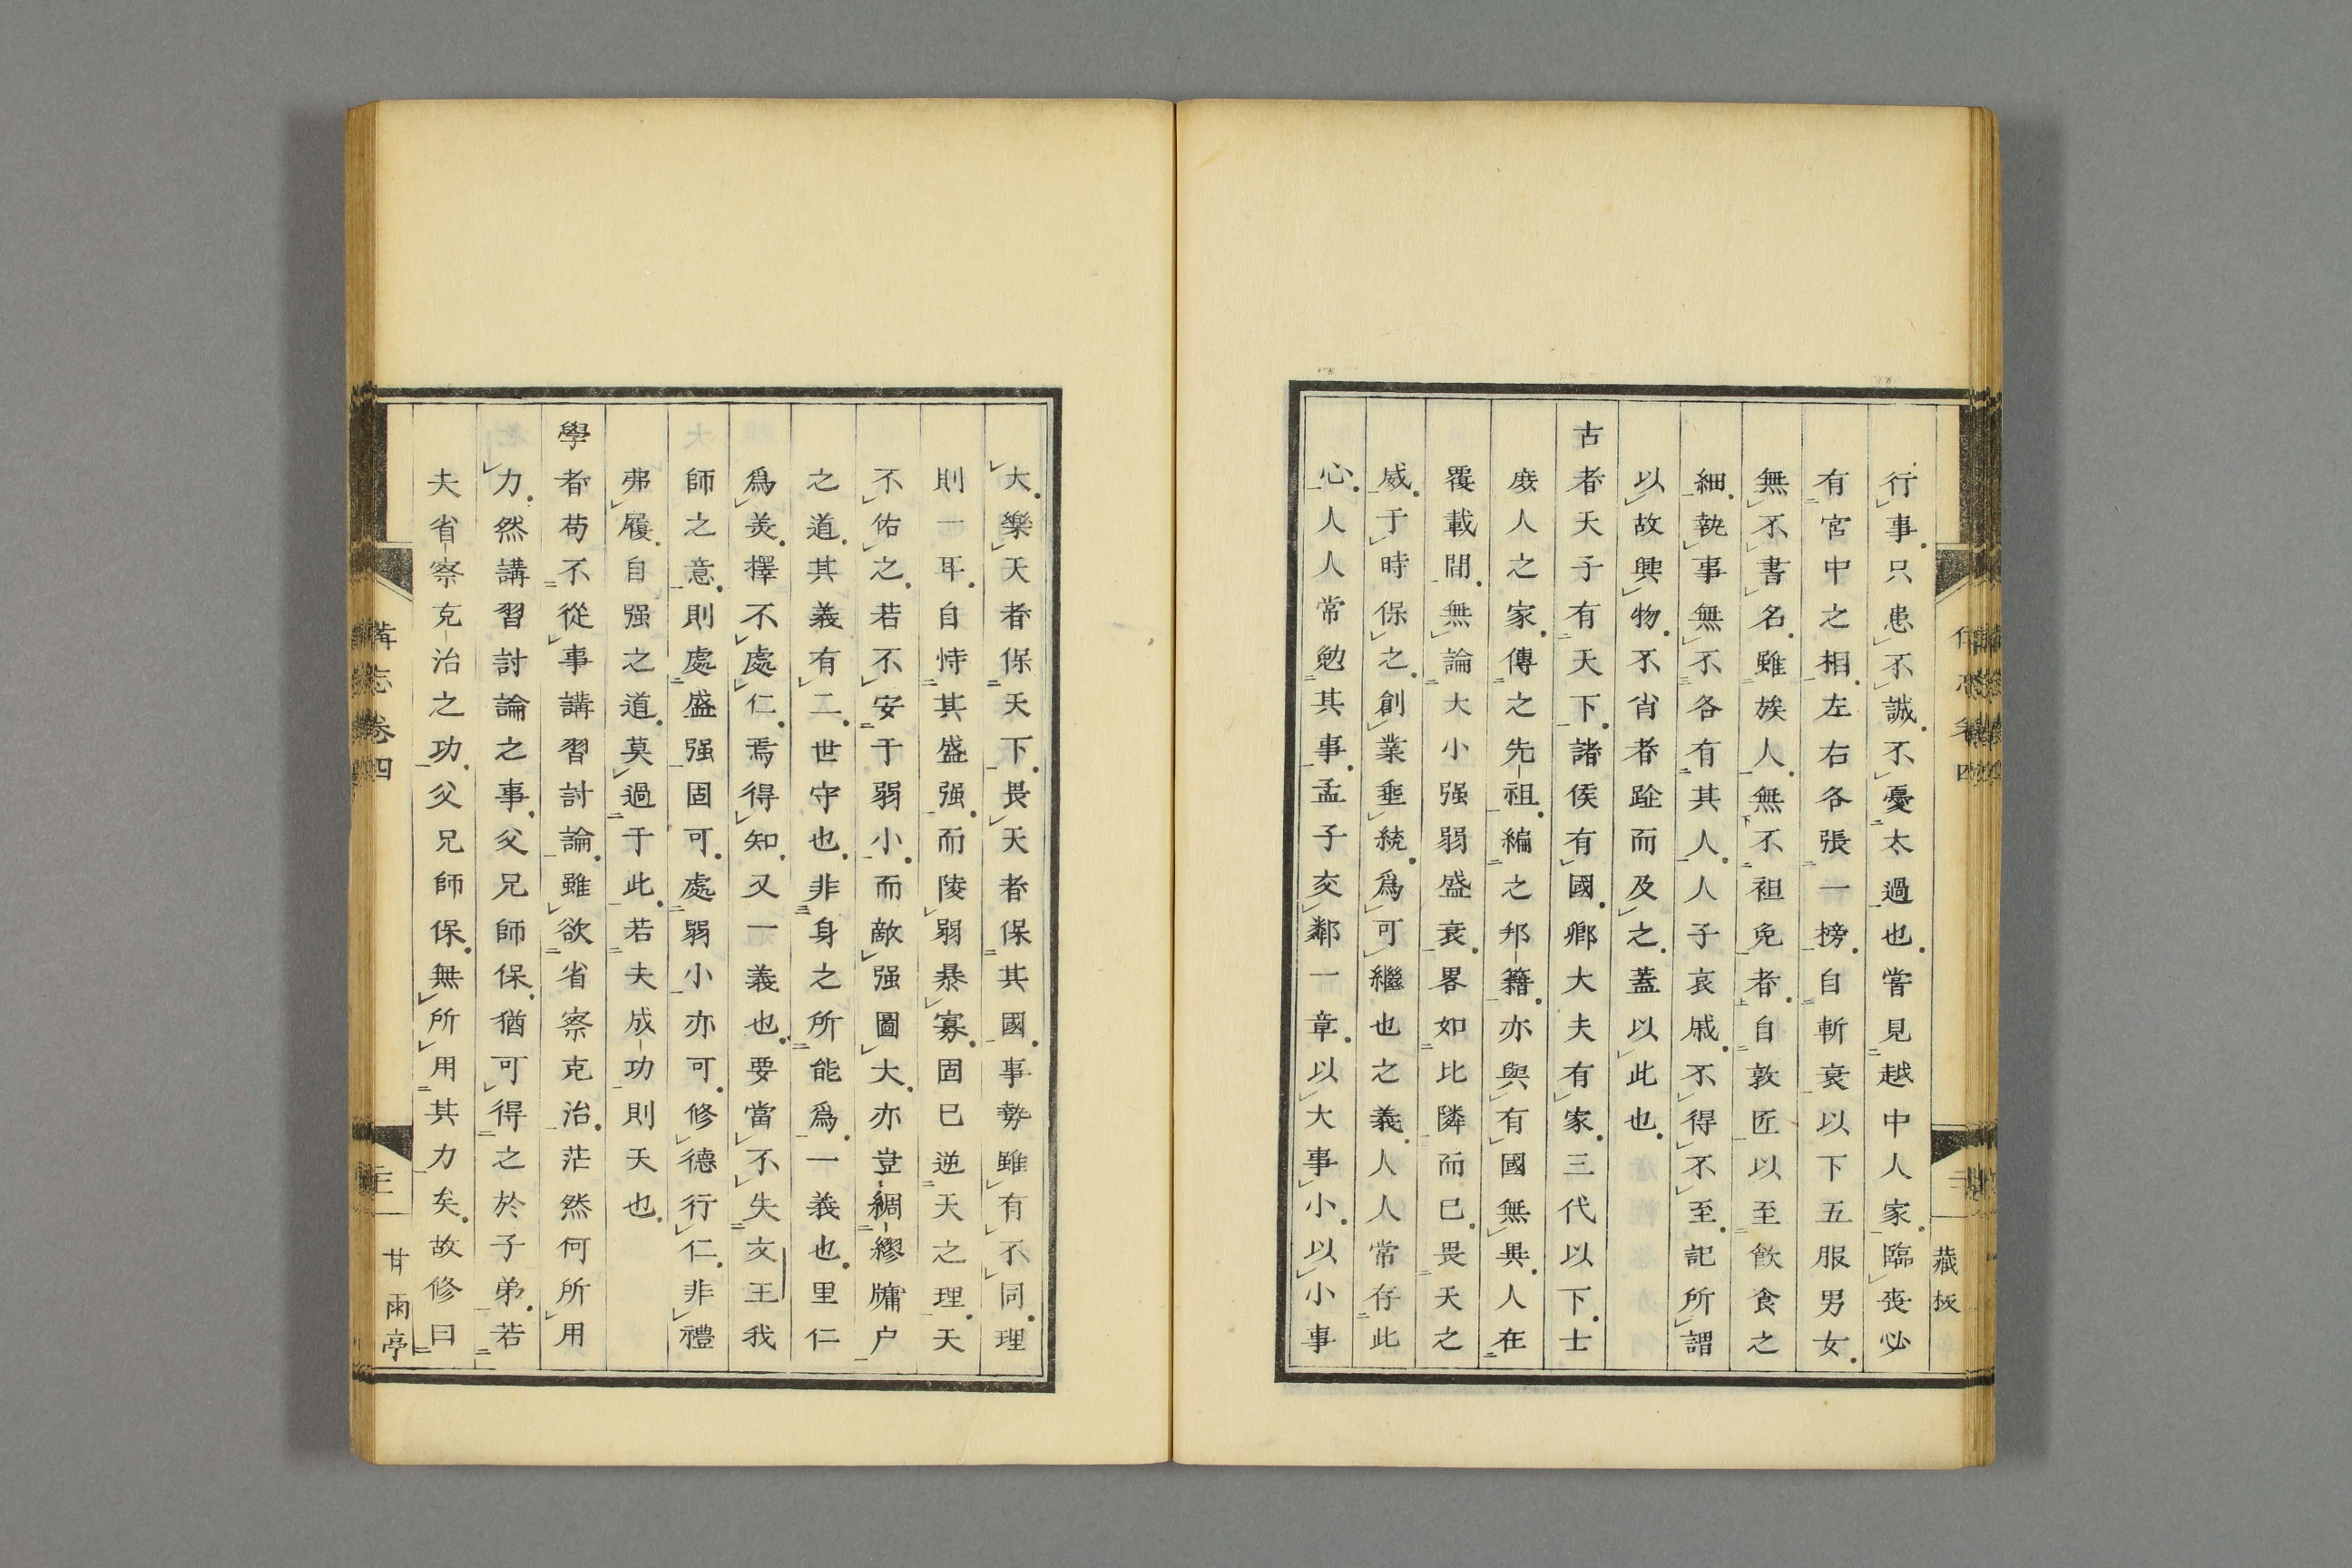 行事只患不誠不憂太過也嘗見越中人家臨喪必
有宮中之相左右各張一榜自斬衰以下五服男女
無不書名雖族人無不袒免者自敦匠以至飲食之
細執事無不各有其人人子哀戚不得不至記所謂
以故興物不肖者跂而及之蓋以此也
古者天子有天下諸侯有國鄉大夫有家三代以下士
庻人之家傳之先祖編之邦籍亦與有國無異人在
覆載間無論大小强弱盛衰畧如比隣而已畏天之
威于時保之創業垂統爲可繼也之義人人常存此
心人人常勉其事孟子交鄰一章以大事小以小事
大樂天者保天下畏天者保其國事勢雖有不同理
則一耳自恃其盛强而陵弱暴寡固已逆天之理天
不佑之若不安于弱小而敵强圖大亦豈綢繆牖户
之道其義有二世守也非身之所能爲一義也里仁
爲美擇不處仁焉得知又一義也要當不失文王我
師之意則處盛强固可處弱小亦可修德行仁非禮
弗履自强之道莫過于此若夫成功則天也
學者苟不從事講習討論雖欲省察克治茫然何所用
力然講習討論之事父兄師保猶可得之於子弟若
夫省察克治之功父兄師保無所用其力矣故修曰
藏板
講志卷四
三
甘雨亭